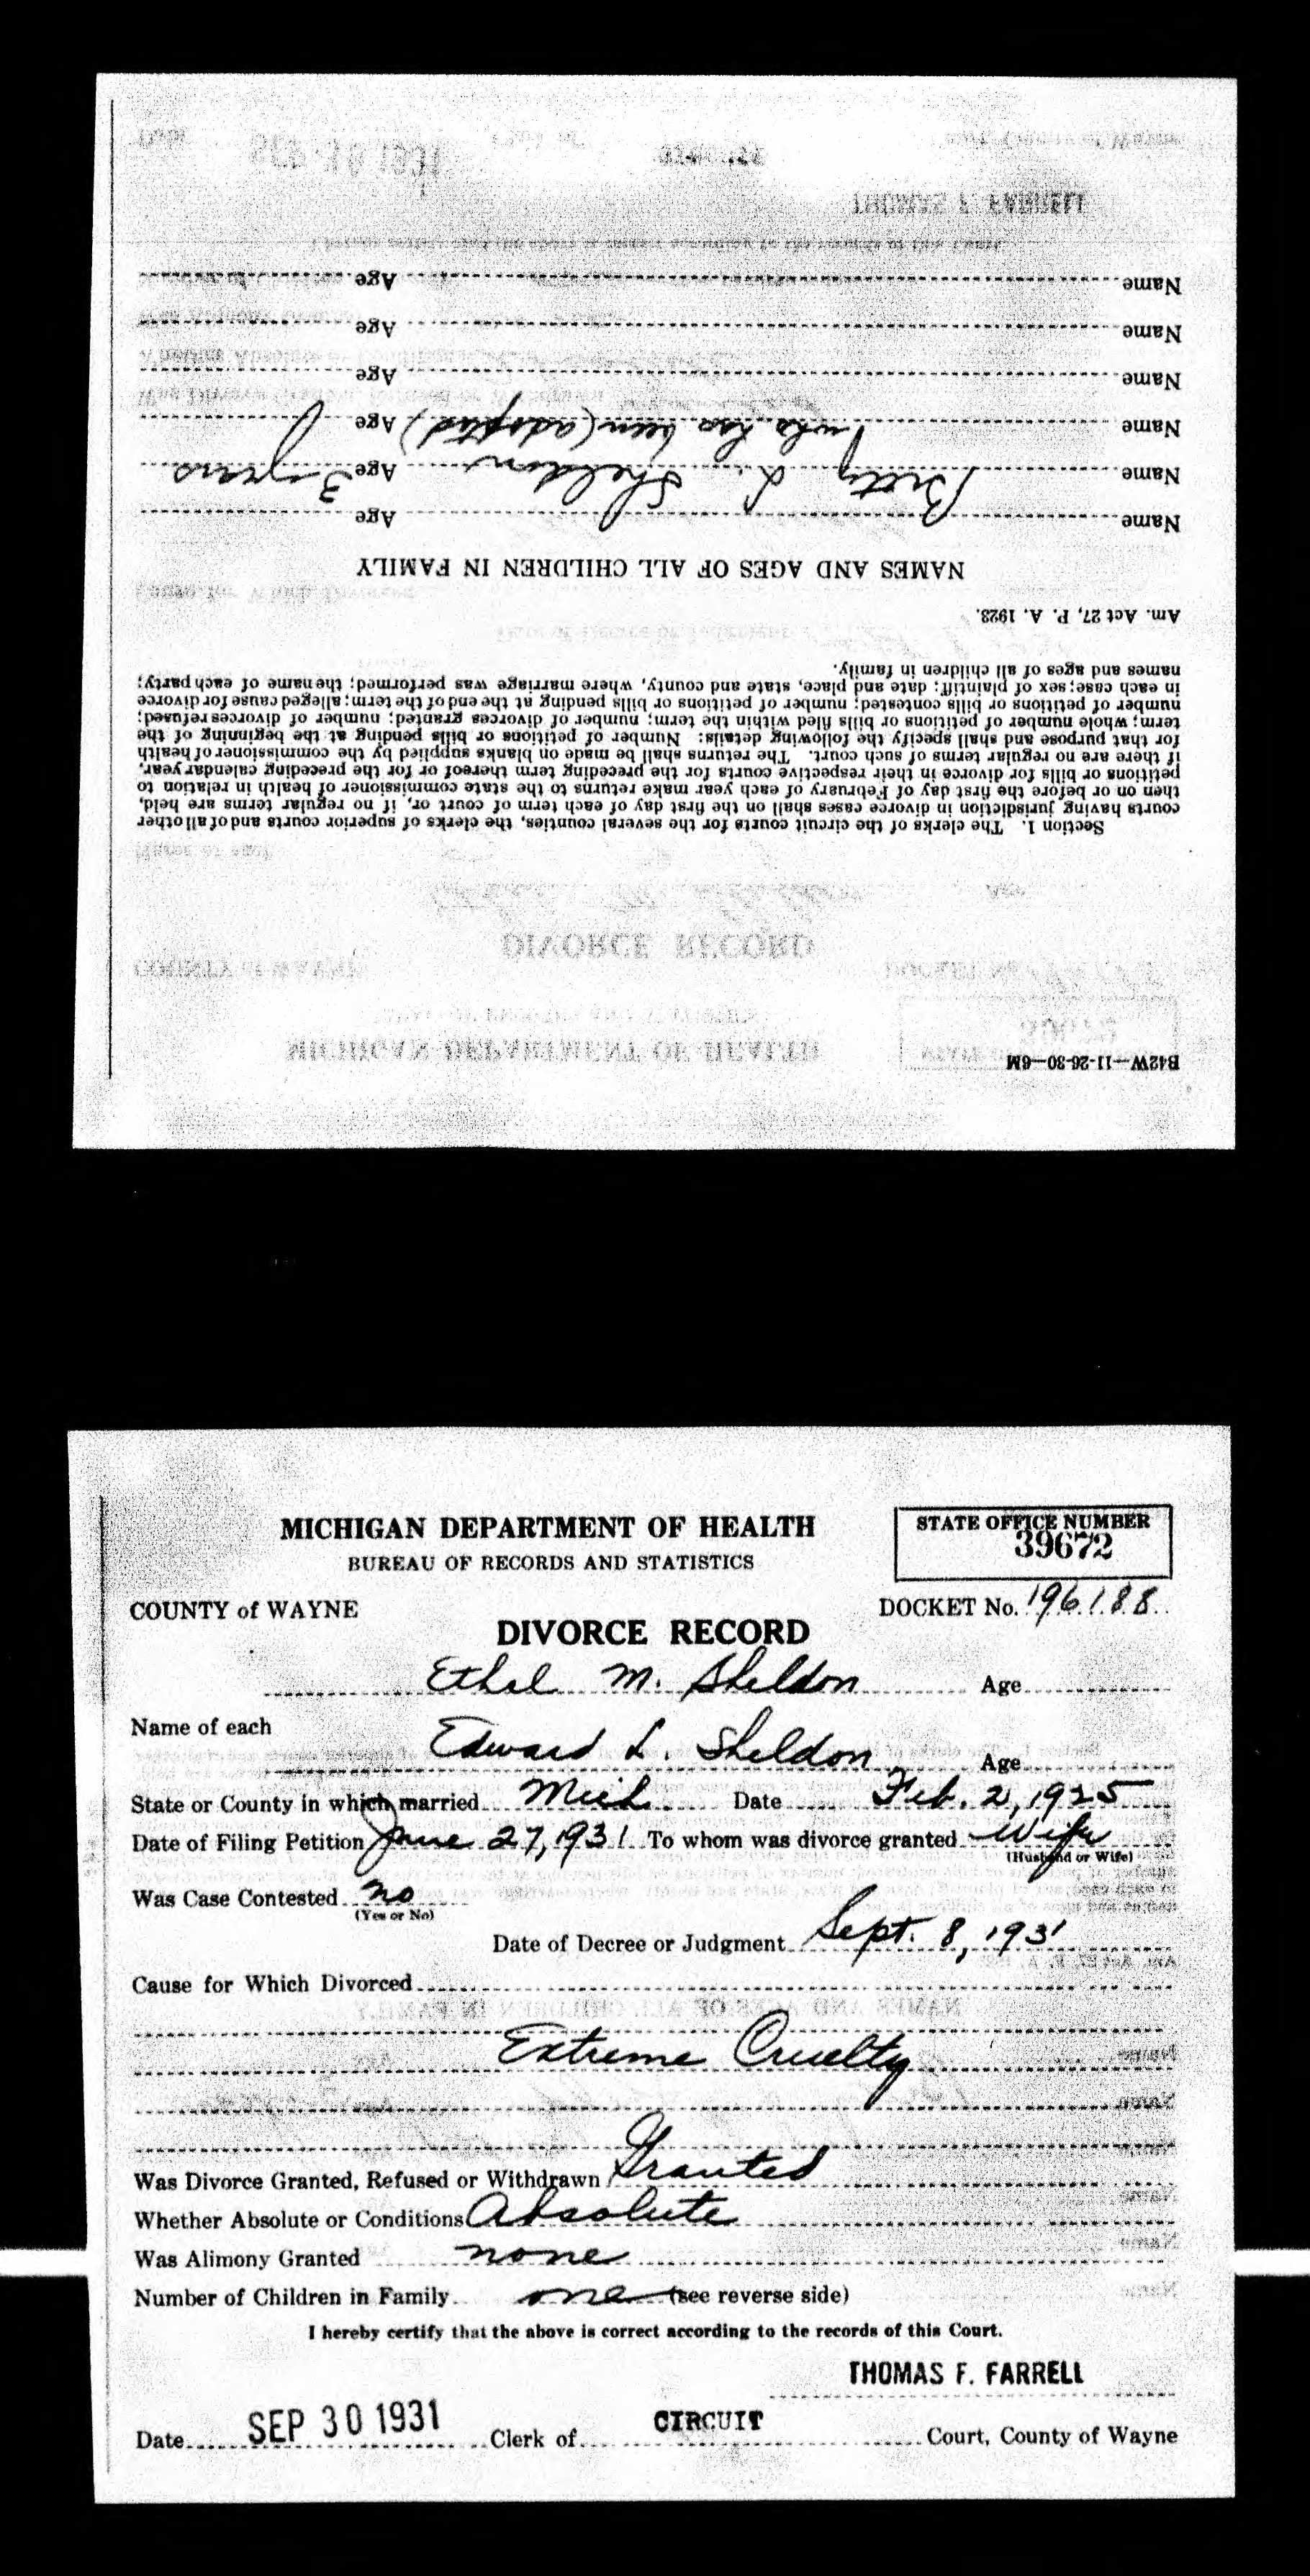 B42W—11-26-30—6M
Section 1. The clerks of the circuit courts for the several counties, the clerks of superior courts and of all other
courts having jurisdiction in divorce cases shall on the first day of each term of court or, if no regular terms are held,
then on or before the first day of February of each year make returns to the state commissioner of health in relation to
petitions or bills for divorce in their respective courts for the preceding term thereof or for the preceding calendar year,
if there are no regular terms of such court. The returns shall be made on blanks supplied by the commissioner of health
for that purpose and shall specify the following details: Number of petitions or bills pending at the beginning of the
term; whole number of petitions or bills filed within the term; number of divorces granted; number of divorces refused;
number of petitions or bills contested; number of petitions or bills pending at the end of the term; alleged cause for divorce
in each case; sex of plaintiff; date and place, state and county, where marriage was performed; the name of each party;
names and ages of all children in family.
Am. Act 27, P. A. 1923.
NAMES AND AGES OF ALL CHILDREN IN FAMILY
Name Age
Name Betty L. Sheldon Age 3 years
Name who has been (adopted) Age
Name Age
Name Age
Name Age
MICHIGAN DEPARTMENT OF HEALTH
BUREAU OF RECORDS AND STATISTICS
STATE OFFICE NUMBER
39672
COUNTY of WAYNE
DOCKET No. 196188
DIVORCE RECORD
Ethel M. Sheldon Age
Name of each
Edward L. Sheldon Age
State or County in which married Mich. Date Feb. 2, 1925
Date of Filing Petition June 27, 1931 To whom was divorce granted Wife
(Husband or Wife)
Was Case Contested no
(Yes or No)
Date of Decree or Judgment Sept. 8, 1931
Cause for Which Divorced
Extreme Cruelty
Was Divorce Granted, Refused or Withdrawn Granted
Whether Absolute or Conditions Absolute
Was Alimony Granted none
Number of Children in Family one (see reverse side)
I hereby certify that the above is correct according to the records of this Court.
THOMAS F. FARRELL
Date SEP 30 1931 Clerk of CIRCUIT Court, County of Wayne